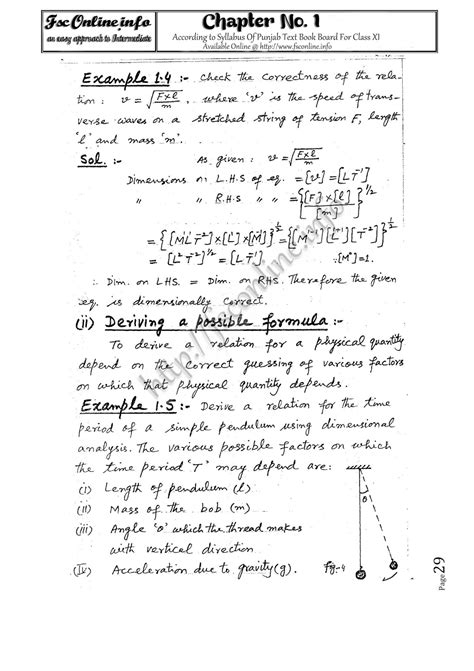 Fsc Online.info
an easy approach to Intermediate
Chapter No. 1
According to Syllabus Of Punjab Text Book Board For Class XI
Available Online @ http://www.fsconline.info
Example 1.4 :- Check the correctness of the rela-
tion : v = √(F×l/m) , where 'v' is the speed of trans-
verse waves on a stretched string of tension F, length
'l' and mass 'm'.
Sol. :- As given : v = √(F×l/m)
Dimensions on L.H.S of eq. = [v] = [LT⁻¹]
" " R.H.S " " = {[F]×[l]/[m]}^1/2
= {[MLT⁻²]×[L]×[M⁻¹]}^1/2 = {[M¹⁻¹][L¹⁺¹][T⁻²]}^1/2
= [L²T⁻²]^1/2 = [LT⁻¹]. ∵[M°]=1.
∴ Dim. on LHS. = Dim. on RHS. Therefore the given
eq. is dimensionally correct.
(ii) Deriving a possible formula :-
To derive a relation for a physical quantity
depend on the correct guessing of various factors
on which that physical quantity depends.
Example 1.5 :- Derive a relation for the time
period of a simple pendulum using dimensional
analysis. The various possible factors on which
the time period 'T' may depend are :
(i) Length of pendulum (l)
(ii) Mass of the bob (m)
(iii) Angle 'θ' which the thread makes
with vertical direction
(iv) Acceleration due to gravity (g).
θ
Fig-4
Page 29
http://fsconline.info